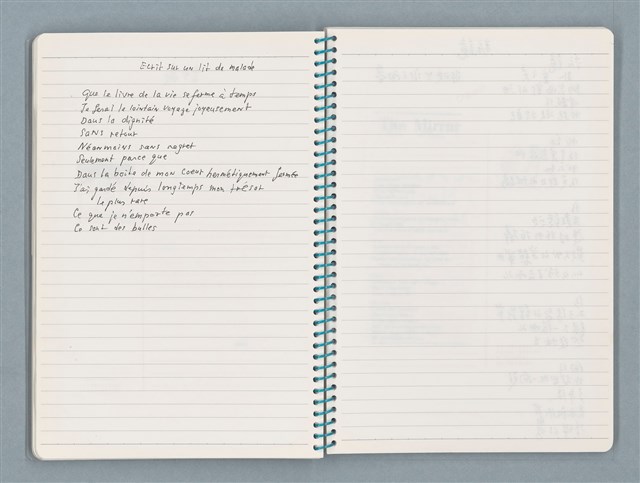 Ecrit sur un lit de malade
Que le livre de la vie se ferme à temps
Je ferai le lointain voyage joyeusement
Dans la dignité
Sans retour
Néanmoins sans regret
Seulement parce que
Dans la boîte de mon coeur hermétiquement fermée
J'ai gardé depuis longtemps mon trésor
le plus rare
Ce que je n'emporte pas
Ce sont des bulles